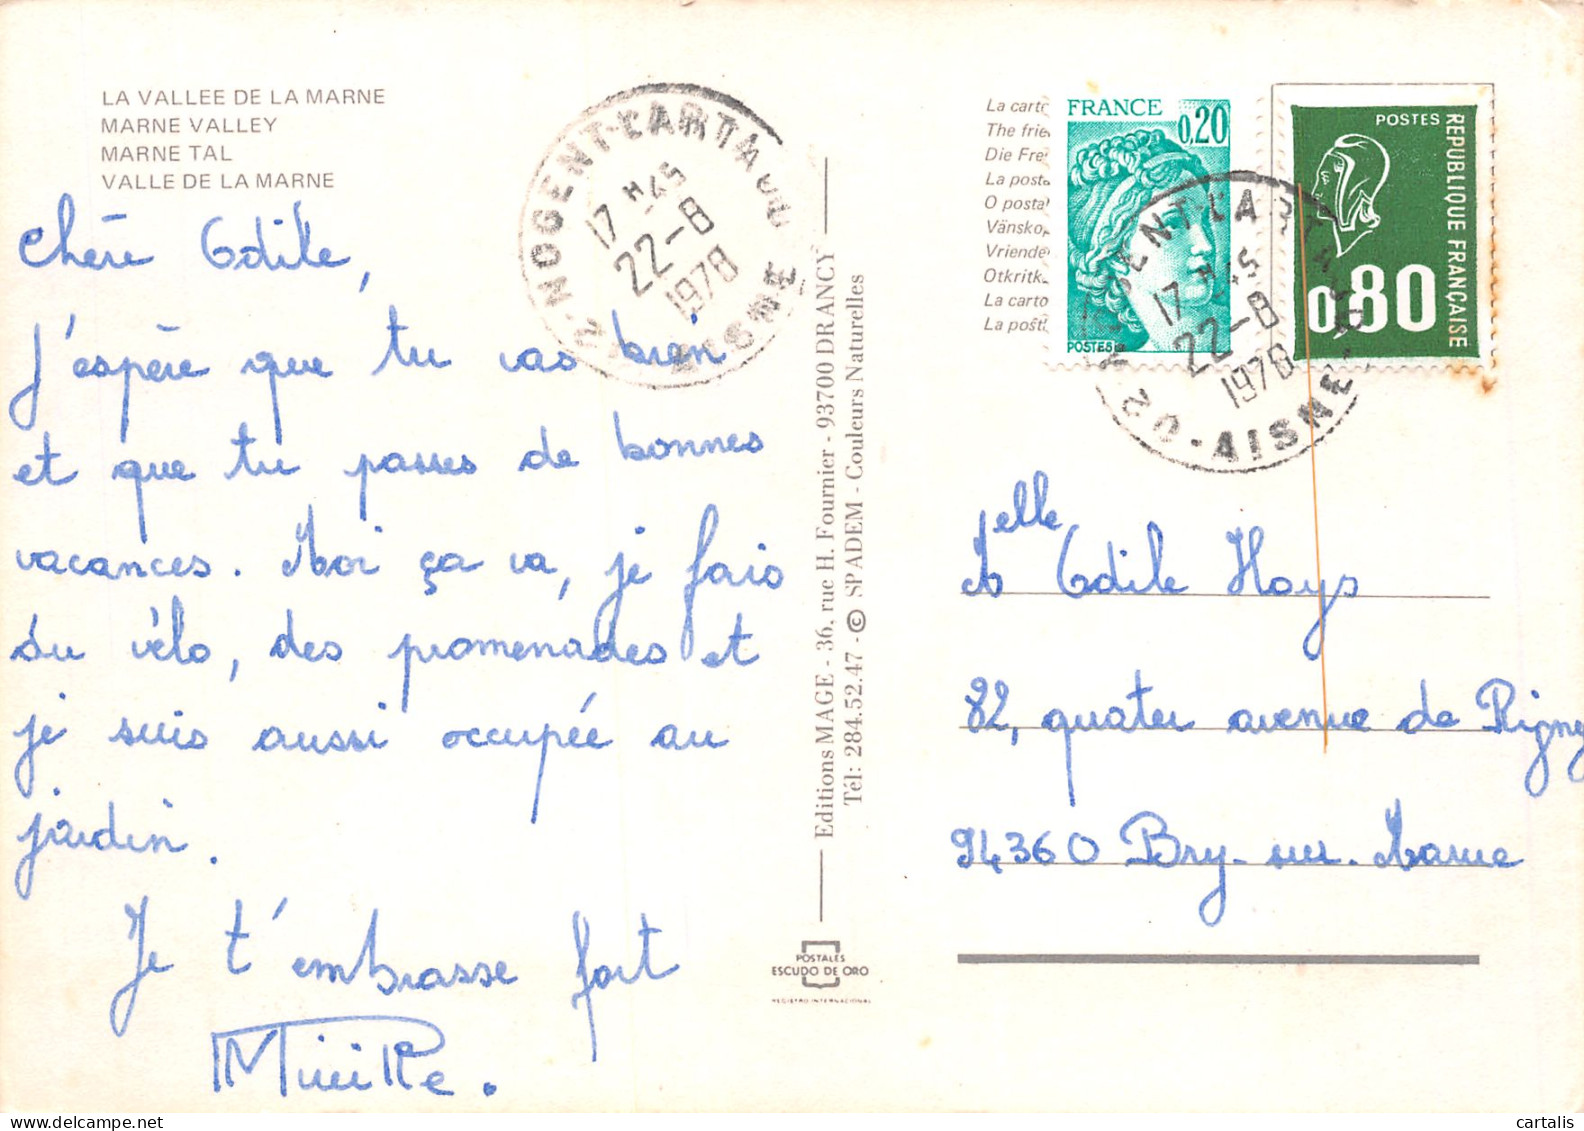 LA VALLEE DE LA MARNE
MARNE VALLEY
MARNE TAL
VALLE DE LA MARNE
Chère Odile,
J'espère que tu vas bien
et que tu passes de bonnes
vacances. Moi ça va, je fais
du vélo, des promenades et
je suis aussi occupée au
jardin.
Je t'embrasse fort
Mireille.
NOGENT-L'ARTAUD
17 H 45
22-8
1978
02 AISNE
Editions MAGE - 36, rue H. Fournier - 93700 DRANCY
Tél: 284.52.47 - © SPADEM - Couleurs Naturelles
POSTALES
ESCUDO DE ORO
REGISTRO INTERNACIONAL
La carto
The frie
Die Fre
La posta
O posta
Vänskop
Vriende
Otkritk
La carto
La pošt
FRANCE
0,20
POSTES
POSTES
REPUBLIQUE FRANÇAISE
0.80
GENT-L'ARTAUD
17 H 45
22-8
1978
02-AISNE
Melle Odile Hoys
82, quater avenue de Rigny
94360 Bry-sur-Marne
cartalis